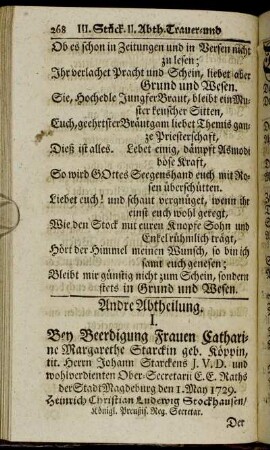 268 III. Stück. II. Abth. Trauer- und
Ob es schon in Zeitungen und in Versen nicht
zu lesen;
Ihr verlachet Pracht und Schein, liebet aber
Grund und Wesen.
Sie, Hochedle Jungfer Braut, bleibt ein Mu-
ster keuscher Sitten,
Euch, geehrtster Bräutgam liebet Themis gan-
ze Priesterschaft,
Dieß ist alles. Lebet einig, dämpft Asmodi
böse Kraft,
So wird GOttes Seegenshand euch mit Ro-
sen überschütten.
Liebet euch! und schaut vergnüget, wenn ihr
einst euch wohl geregt,
Wie den Stock mit euren Knopfe Sohn und
Enkel rühmlich trägt,
Hört der Himmel meinen Wunsch, so bin ich
samt euch genesen;
Bleibt mir günstig nicht zum Schein, sondern
stets in Grund und Wesen.
Andre Abtheilung.
I.
Bey Beerdigung Frauen Cathari-
ne Margarethe Starckin geb. Köppin,
tit. Herrn Johann Starckens J. V. D. und
wohlverdienten Ober-Secretarii E. E. Raths
der Stadt Magdeburg den 1. May 1729.
Heinrich Christian Ludewig Stockhausen/
Königl. Preußis. Reg. Secretar.
Der